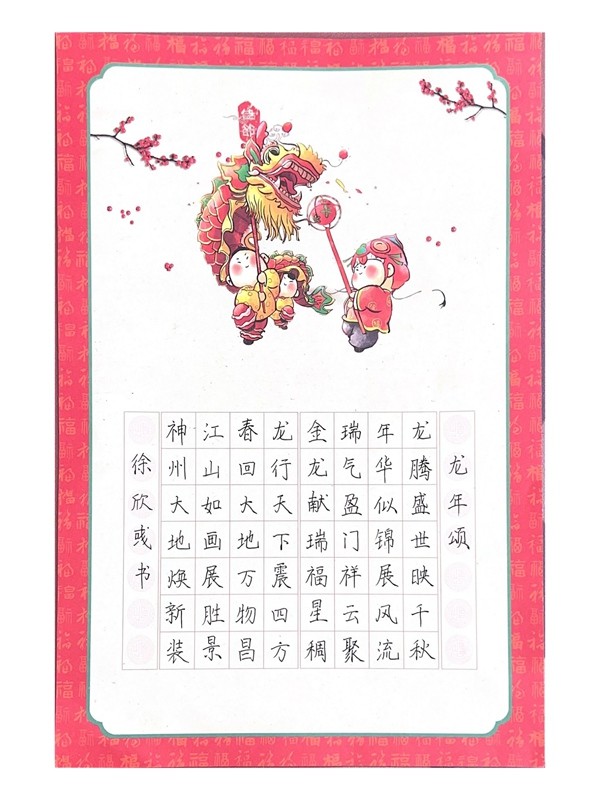 龙年颂
龙腾盛世映千秋
年华似锦展风流
瑞气盈门祥云聚
金龙献瑞福星稠
龙行天下震四方
春回大地万物昌
江山如画展胜景
神州大地焕新装
徐欣彧书